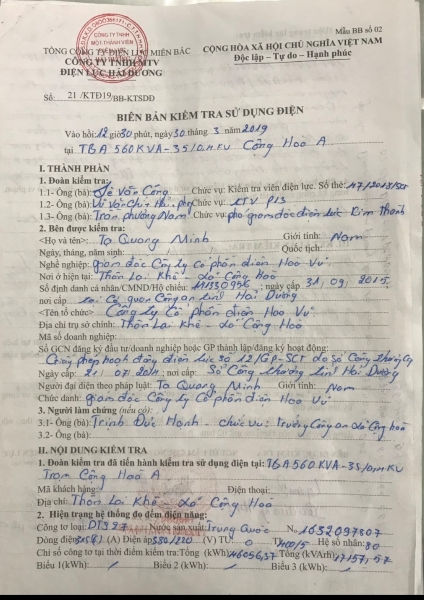 Mẫu BB số 02
TỔNG CÔNG TY ĐIỆN LỰC MIỀN BẮC
CÔNG TY TNHH MTV
ĐIỆN LỰC HẢI DƯƠNG
CỘNG HÒA XÃ HỘI CHỦ NGHĨA VIỆT NAM
Độc lập – Tự do – Hạnh phúc
Số: 21 /KTĐ19/BB-KTSDĐ
BIÊN BẢN KIỂM TRA SỬ DỤNG ĐIỆN
Vào hồi 12 giờ 30 phút, ngày 30 tháng 3 năm 2019
tại TBA 560KVA-35/0,4KV Cộng Hoà A
I. THÀNH PHẦN
1. Đoàn kiểm tra:
1.1- Ông (bà): Lê Văn Công Chức vụ: Kiểm tra viên điện lực. Số thẻ:
1.2- Ông (bà): Vũ Văn Chức vụ: KTV P13
1.3- Ông (bà): Trần Phương Nam Chức vụ: phó giám đốc điện lực Kim Thành
2. Bên được kiểm tra:
<Họ và tên>: Tạ Quang Minh Giới tính: Nam
Ngày, tháng, năm sinh: Quốc tịch:
Nghề nghiệp: giám đốc Công ty Cổ phần điện Hoà Vụ
Nơi ở hiện tại: Thôn Lai Khê - xã Cộng Hoà
Số định danh cá nhân/CMND/Hộ chiếu: ngày cấp 31, 09, 2015
nơi cấp tại Cơ quan Công an tỉnh Hải Dương
<Tên tổ chức> Công ty Cổ phần điện Hoà Vụ
Địa chỉ trụ sở chính: Thôn Lai Khê - xã Cộng Hoà
Mã số doanh nghiệp:
Số GCN đăng ký đầu tư/doanh nghiệp hoặc GP thành lập/đăng ký hoạt động:
Giấy phép hoạt động điện lực số 12/GP-SCT do Sở Công thương
Ngày cấp: nơi cấp: Sở Công thương tỉnh Hải Dương
Người đại diện theo pháp luật: Tạ Quang Minh Giới tính: Nam
Chức danh: giám đốc Công ty Cổ phần điện Hoà Vụ
3. Người làm chứng (nếu có):
3.1- Ông (bà): Trịnh Đức Hạnh - chức vụ: trưởng Công an xã Cộng hoà
3.2- Ông (bà):
II. NỘI DUNG KIỂM TRA
1. Đoàn kiểm tra đã tiến hành kiểm tra sử dụng điện tại: TBA 560KVA-35/0,4KV
Trạm Cộng Hoà A
Mã khách hàng: Điện thoại:
Địa chỉ: Thôn Lai Khê - xã Cộng Hoà
2. Hiện trạng hệ thống đo đếm điện năng:
Công tơ loại: Nước sản xuất: Trung Quốc No 1632097807
Dòng điện: (A) Điện áp: 380/220 (V) TU: 0 TI: 400/5 Hệ số nhân: 80
Chỉ số công tơ tại thời điểm kiểm tra: Tổng (kWh) Tổng (kVArh) 17157,57
Biểu 1(kWh): Biểu 2 (kWh): Biểu 3 (kWh):